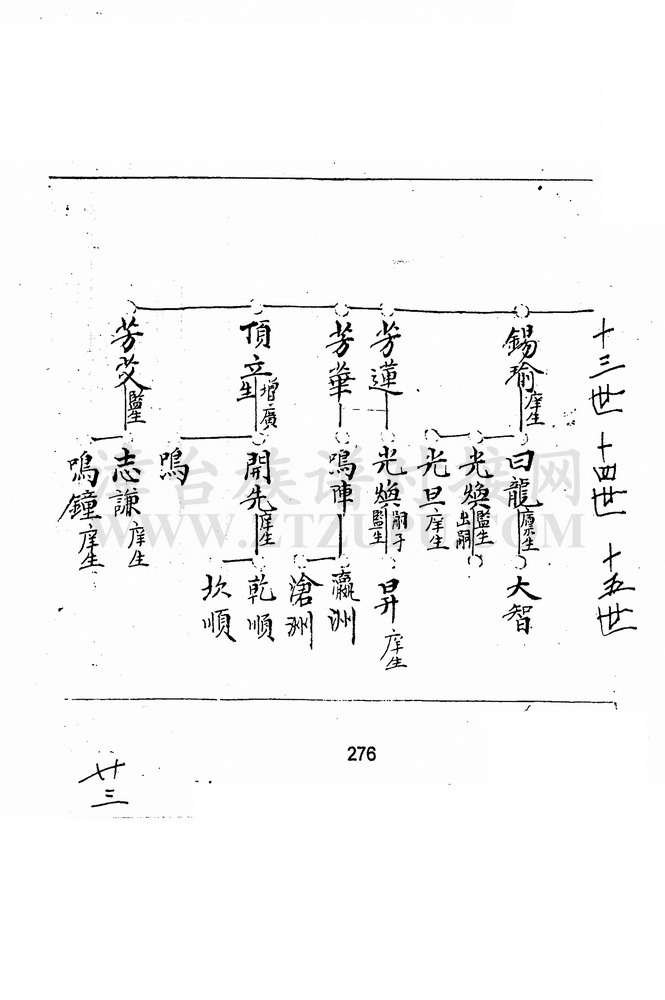 十三世 十四世 十五世
錫瑜 庠生
芳蓮
芳華
頂立 增廣生
芳芠 監生
曰龍 廩生
光煥 監生 出嗣
光旦 庠生
光煥 嗣子 監生
鳴陣
開先 庠生
鳴
志謙 庠生
鳴鐘 庠生
大智
昇 庠生
瀛洲
滄洲
乾順
坎順
276
廿三
族谱
网